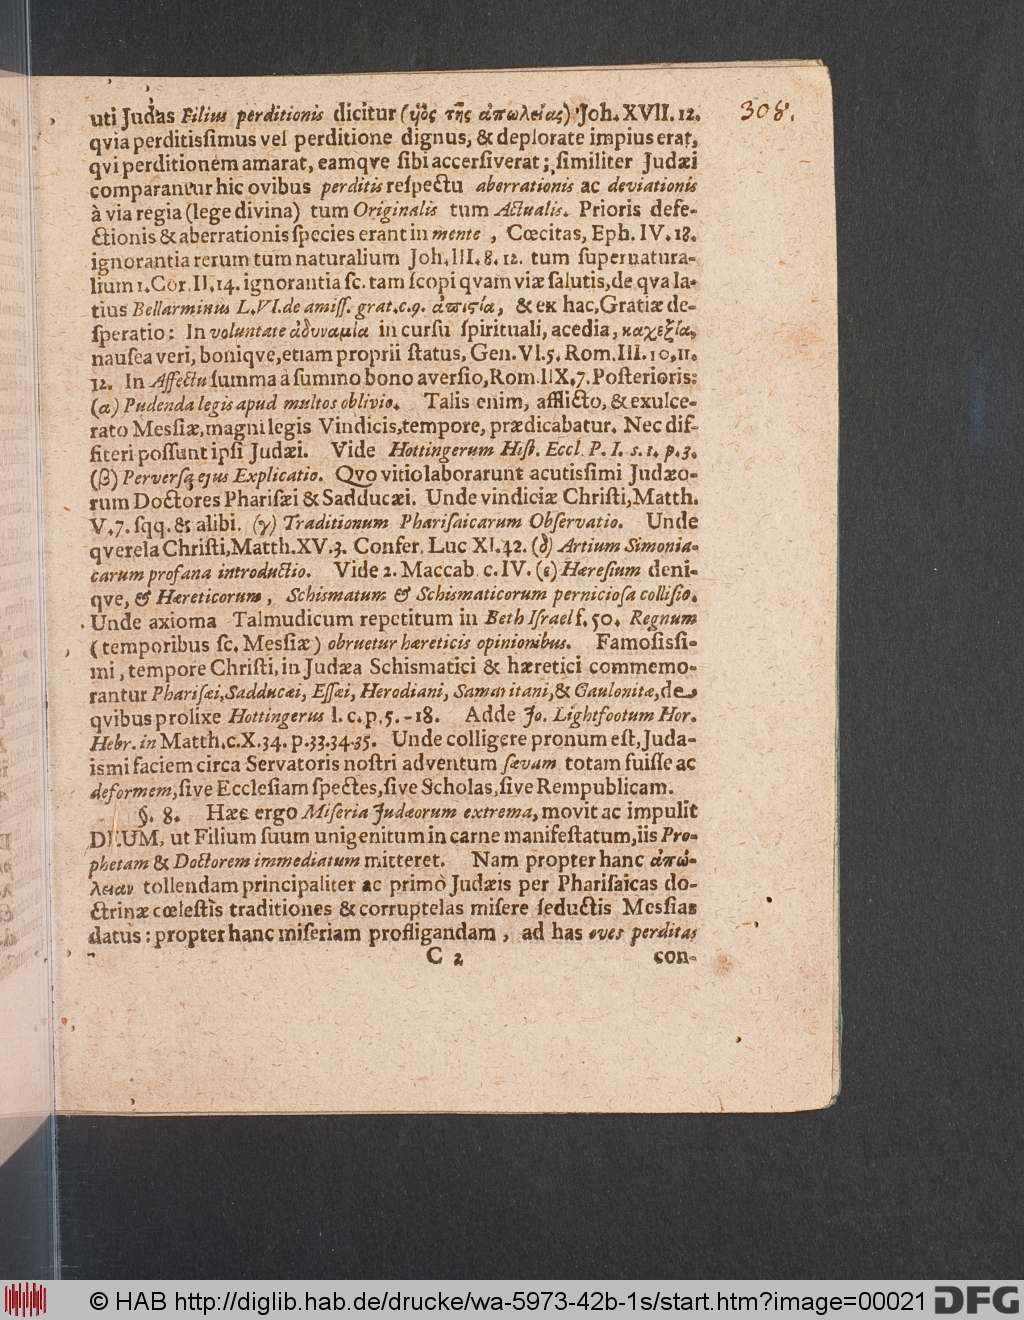 308.
uti Judas Filius perditionis dicitur (ὑιὸς τῆς ἀπωλείας) Joh. XVII. 12.
qvia perditisſimus vel perditione dignus, & deplorate impius erat,
qvi perditionem amarat, eamqve ſibi accerſiverat; ſimiliter Judæi
comparantur hic ovibus perditis reſpectu aberrationis ac deviationis
à via regia (lege divina) tum Originalis tum Actualis. Prioris defe-
ctionis & aberrationis ſpecies erant in mente, Cœcitas, Eph. IV. 18.
ignorantia rerum tum naturalium Joh. III. 8. 12. tum ſupernatura-
lium 1. Cor. II. 14. ignorantia ſc. tam ſcopi qvam viæ ſalutis, de qva la-
tius Bellarminus L. VI. de amiſſ. grat. c. 9. ἀπιςία, & ex hac, Gratiæ de-
ſperatio: In voluntate ἀδυναμία in curſu ſpirituali, acedia, καχεξία,
nauſea veri, boniqve, etiam proprii ſtatus, Gen. VI. 5. Rom. III. 10. 11.
12. In Affectu ſumma à ſummo bono averſio, Rom. IIX. 7. Poſterioris:
(α) Pudenda legis apud multos oblivio. Talis enim, afflicto, & exulce-
rato Mesſiæ, magni legis Vindicis, tempore, prædicabatur. Nec dif-
fiteri poſſunt ipſi Judæi. Vide Hottingerum Hiſt. Eccl. P. I. s. 1. p. 3.
(β) Perverſaq; ejus Explicatio. Qvo vitio laborarunt acutisſimi Judæo-
rum Doctores Phariſæi & Sadducæi. Unde vindiciæ Chriſti, Matth.
V. 7. ſqq. & alibi. (γ) Traditionum Phariſaicarum Obſervatio. Unde
qverela Chriſti, Matth. XV. 3. Confer. Luc XI. 42. (δ) Artium Simonia-
carum profana introductio. Vide 2. Maccab. c. IV. (ε) Hæreſium deni-
qve, & Hæreticorum, Schismatum & Schismaticorum pernicioſa colliſio.
Unde axioma Talmudicum repetitum in Beth Iſrael f. 50. Regnum
(temporibus ſc. Mesſiæ) obruetur hæreticis opinionibus. Famoſisſi-
mi, tempore Chriſti, in Judæa Schismatici & hæretici commemo-
rantur Phariſæi, Sadducæi, Eſſæi, Herodiani, Samaritani, & Gaulonitæ, de
qvibus prolixe Hottingerus l. c. p. 5. - 18. Adde Jo. Lightfootum Hor.
Hebr. in Matth. c. X. 34. p. 33. 34. 35. Unde colligere pronum eſt, Juda-
ismi faciem circa Servatoris noſtri adventum ſævam totam fuiſſe ac
deformem, ſive Eccleſiam ſpectes, ſive Scholas, ſive Rempublicam.
§. 8. Hæc ergo Miſeria Judæorum extrema, movit ac impulit
DEUM, ut Filium ſuum unigenitum in carne manifeſtatum, iis Pro-
phetam & Doctorem immediatum mitteret. Nam propter hanc ἀπώ-
λειαν tollendam principaliter ac primò Judæis per Phariſaicas do-
ctrinæ cœleſtis traditiones & corruptelas miſere ſeductis Mesſias
datus: propter hanc miſeriam profligandam, ad has oves perditas
C 2 con-
© HAB http://diglib.hab.de/drucke/wa-5973-42b-1s/start.htm?image=00021
DFG